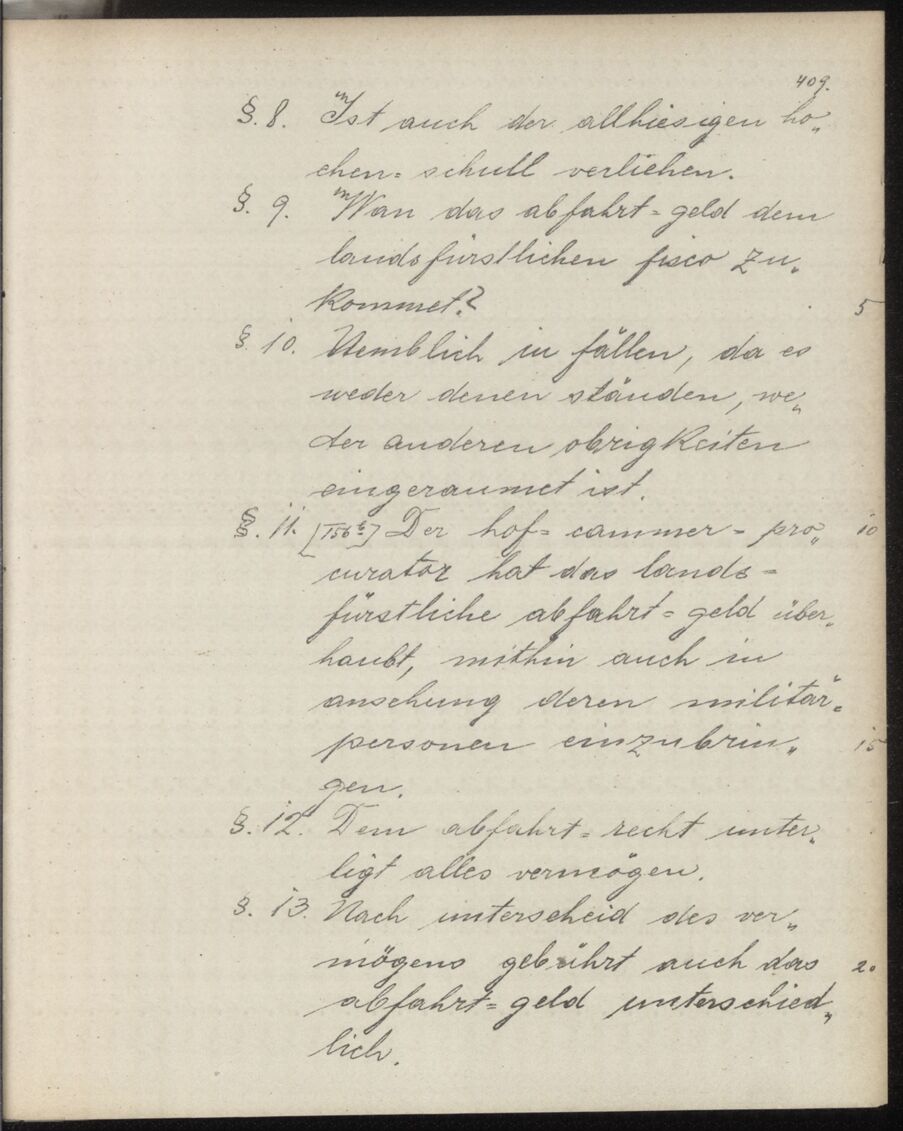 409.
§. 8. Ist auch der allhiesigen ho„
chen= schull verliehen.
§. 9. Wan das abfahrt= geld dem
landsfürstlichen fisco zu„
kommet?
5
§. 10. Nemblich in fällen, da es
weder denen ständen, we„
der anderen obrigkeiten
eingeraumet ist.
§. 11. [156b] Der hof= cammer= pro„
10
curator hat das lands=
fürstliche abfahrt= geld über„
haubt, mithin auch in
ansehung deren militär=
personen einzubrin„
15
gen.
§. 12. Dem abfahrt= recht unter„
ligt alles vermögen.
§. 13. Nach unterscheid des ver„
mögens gebührt auch das
20
abfahrt= geld unterschied„
lich.